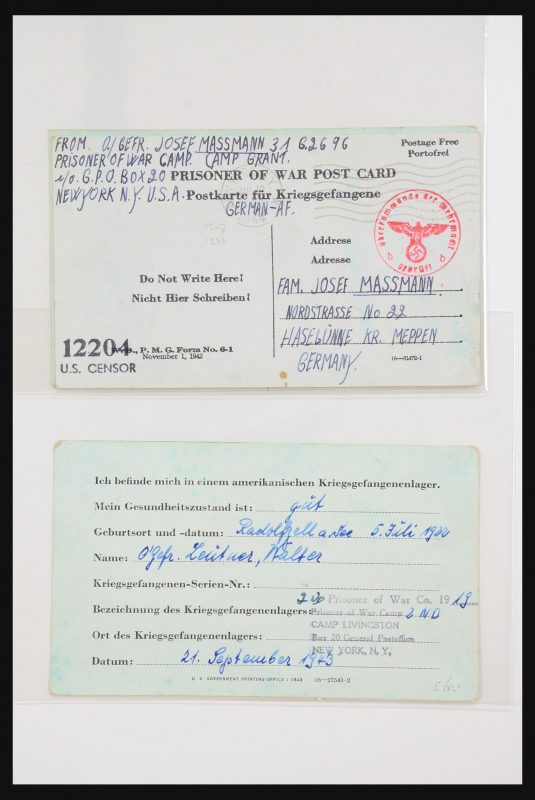 FROM. O/GEFR. JOSEF MASSMANN 31 G.26 96
PRISONER OF WAR CAMP. CAMP GRANT.
c/o. G.P.O. BOX 20 PRISONER OF WAR POST CARD
NEW YORK N.Y. U.S.A. Postkarte für Kriegsgefangene
GERMAN-AF.
Postage Free
Portofrei
Oberkommando der Wehrmacht
b b
Geprüft
Address
Adresse
Do Not Write Here!
Nicht Hier Schreiben!
FAM. JOSEF MASSMANN.
NORDSTRASSE No 22
HASELÜNNE KR. MEPPEN
GERMANY.
12204
P. M. G. Form No. 6-1
November 1, 1942
U.S. CENSOR
16—31472-1
Ich befinde mich in einem amerikanischen Kriegsgefangenenlager.
Mein Gesundheitszustand ist: gut
Geburtsort und -datum: Radolfzell a. See 5. Juli 1922
Name: O'Gefr. Leutner, Walter
Kriegsgefangenen-Serien-Nr.:
Prisoner of War Co. 19
Bezeichnung des Kriegsgefangenenlagers: Prisoner of War Camp
CAMP LIVINGSTON
Ort des Kriegsgefangenenlagers: Box 20 General Postoffice
NEW YORK, N. Y.
Datum: 21. September 1943
U. S. GOVERNMENT PRINTING OFFICE : 1943 16—27543-2